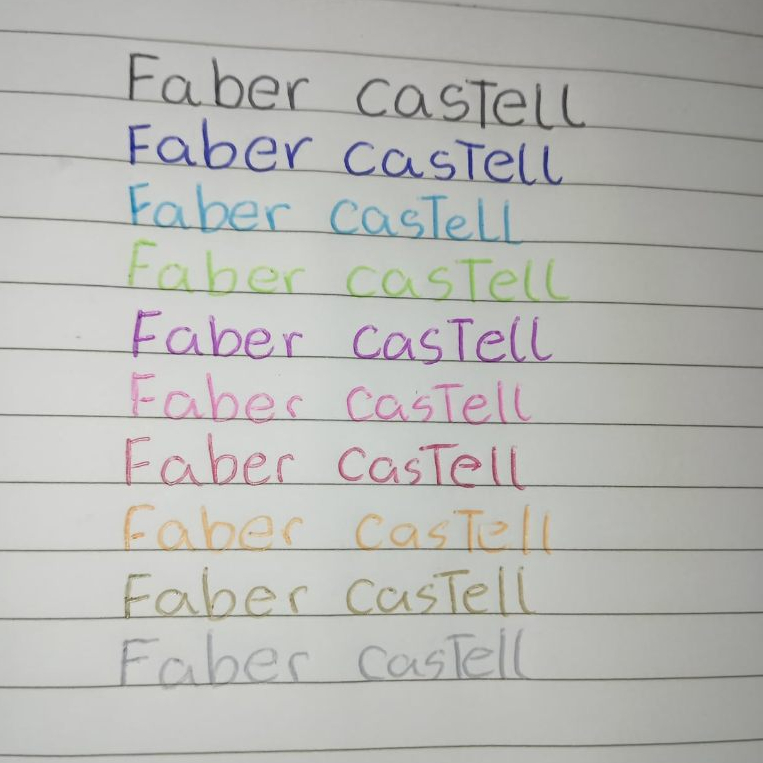 Faber casTell
Faber casTell
Faber casTell
Faber casTell
Faber casTell
Faber casTell
Faber casTell
Faber casTell
Faber casTell
Faber casTell